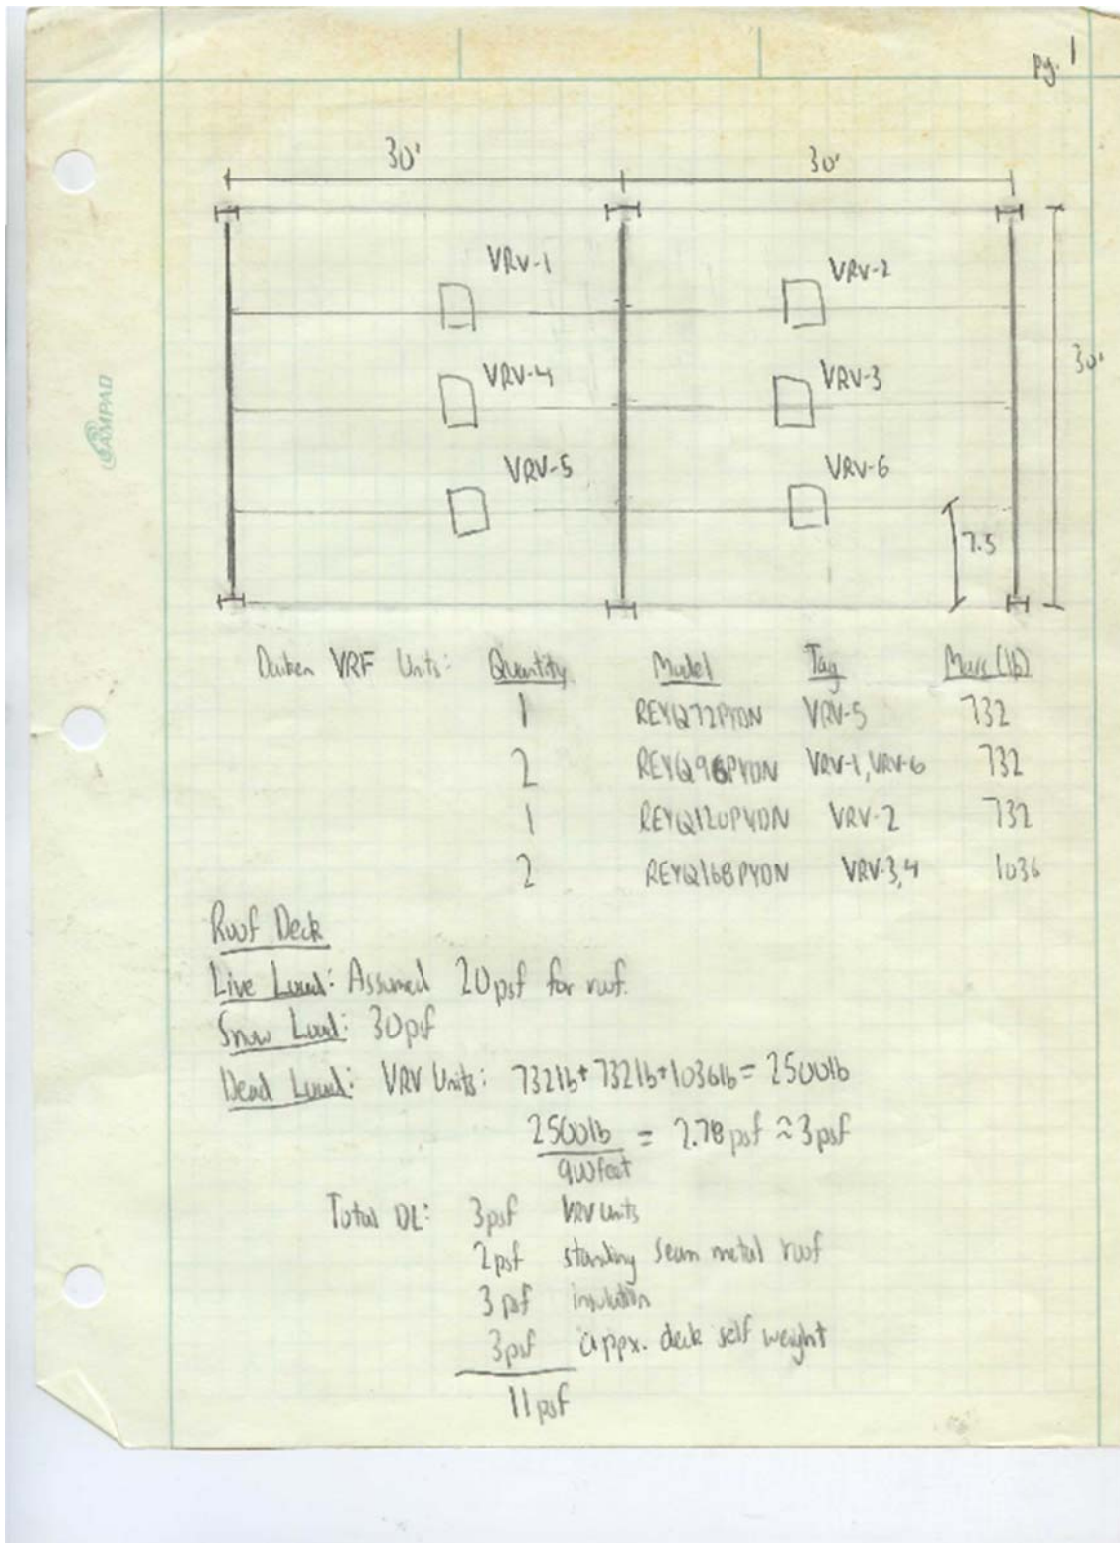 pg. 1
30' 30'
VRV-1 VRV-2
30'
VRV-4 VRV-3
VRV-5 VRV-6
7.5
CAMPAD
Daiken VRF Units: Quantity Model Tag Mass (lb)
1 REYQ72PYDN VRV-5 732
2 REYQ96PYDN VRV-1, VRV-6 732
1 REYQ120PYDN VRV-2 732
2 REYQ168PYDN VRV-3,4 1036
Roof Deck
Live Load: Assumed 20psf for roof.
Snow Load: 30psf
Dead Load: VRV Units: 732lb+732lb+1036lb= 2500lb
2500lb = 2.78psf ≈3psf
900feet
Total DL: 3psf VRV Units
2psf standing seam metal roof
3psf insulation
3psf appx. deck self weight
11psf